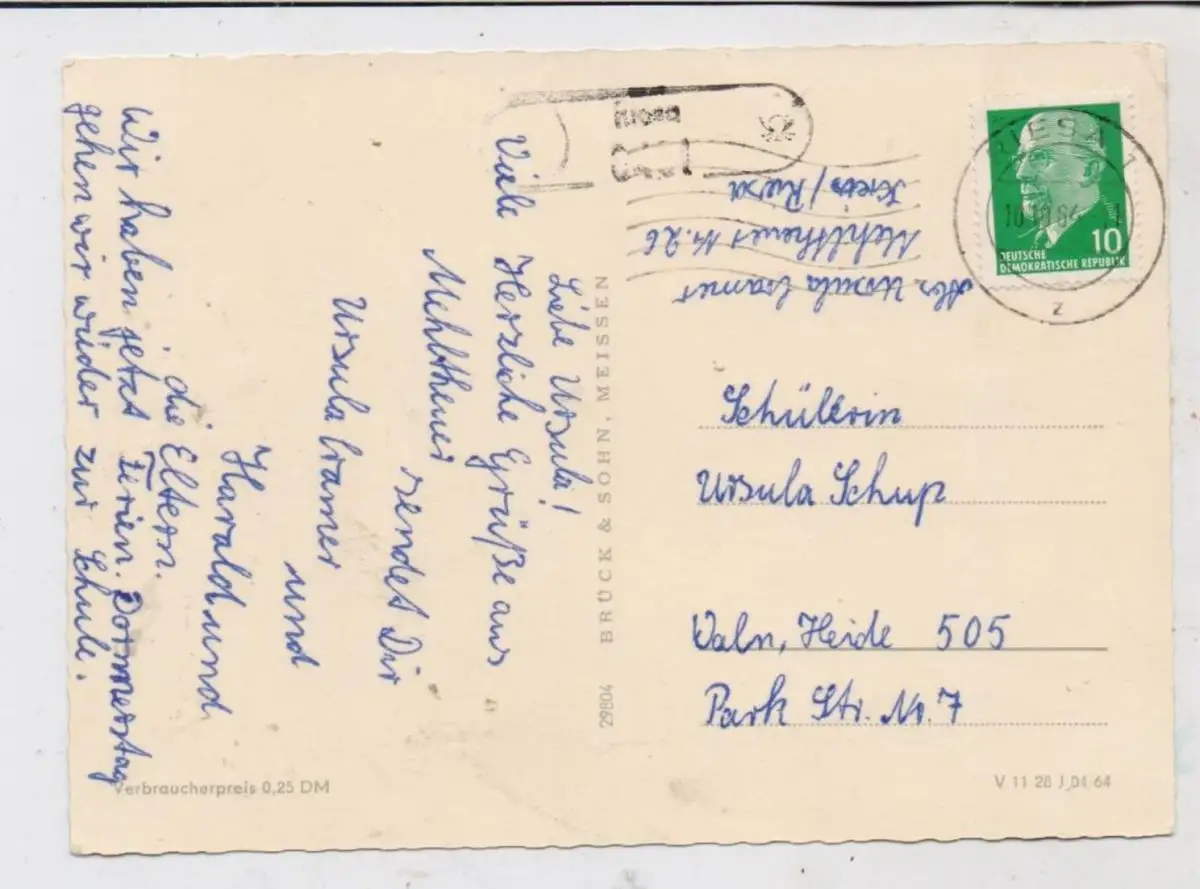 Liebe Ursula!
Viele Herzliche Grüße aus
Mehltheuer
sendet Dir
Ursula Cramer
und
Harald und
die Eltern.
Wir haben jetzt Ferien. Donnerstag
gehen wir wieder zur Schule.
BRÜCK & SOHN, MEISSEN
29804
Verbraucherpreis 0,25 DM
RIESA 1
z
10
DEUTSCHE
DEMOKRATISCHE REPUBLIK
Abs. Ursula Cramer
Mehltheuer Nr. 26
Kreis/Riesa
Schülerin
Ursula Schup
Waln, Heide 505
Park Str. Nr. 7
V 11 28 J 04 64